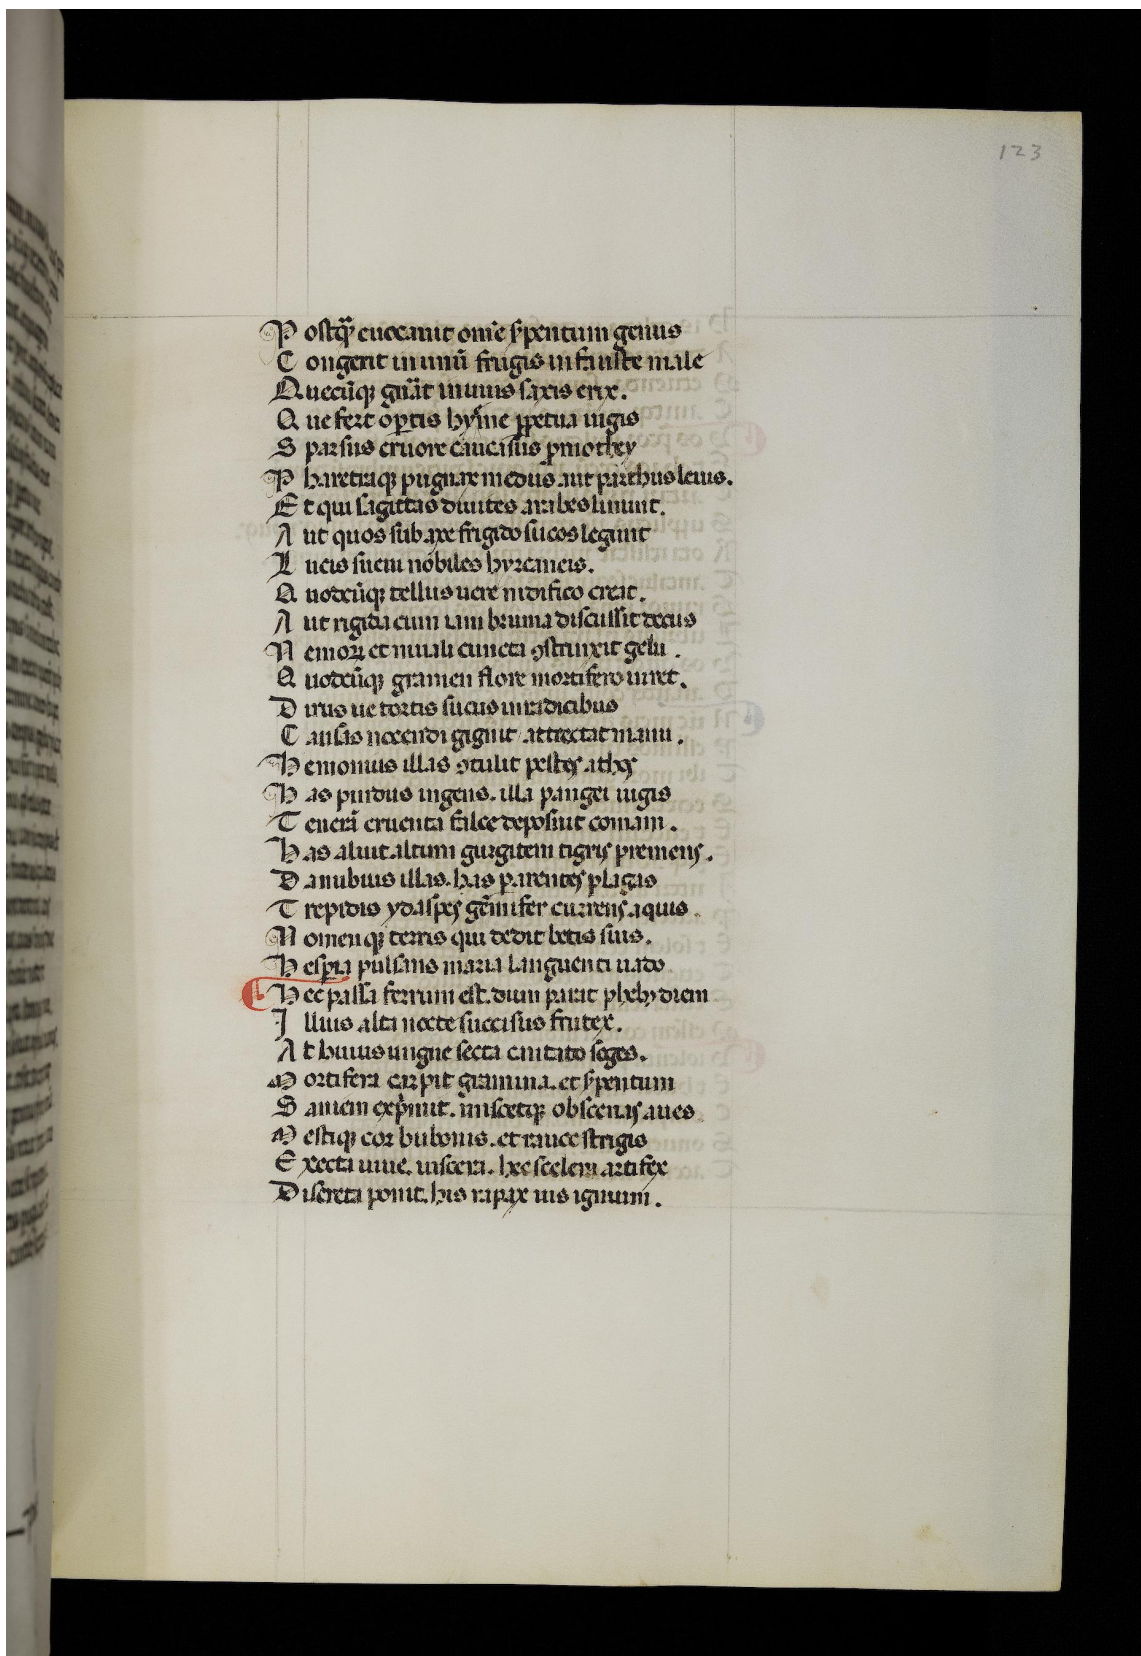 123
Postq̃ȝ euocauit om̃e ẜpentum genus
Congerit in unũ frugis infauste male
Quecũqȝ gñat inuius saxis erix.
Que fert optis hyeme ꝑpetua iugis
Sparsus cruore caucasus ꝓmothey
Pharetraqȝ pugnax medus aut parthus leuis.
Et qui sagittas diuites arabes linunt.
Aut quos sub axe frigido sucos legunt
Lucis sueui nobiles hyrcaneis.
Quodcũqȝ tellus uere nidifico creat.
Aut rigida cum iam bruma discussit decus
Nemoꝝ et niuali cuncta ꝯstruxit gelu.
Quodcũqȝ gramen flore mortifero uiret.
Dirus ue tortis sucus in radicibus
Causas nocendi gignit attrectat manu.
Hemonius illas ꝯtulit pestes athos
Has pindus ingens. illa pangei iugis
Tenerã cruenta falce deposuit comam.
Has aluit altum gurgitem tigris premens.
Danubius illas. has parentes plagas
Trepidis ydaspes gẽmifer currens aquis.
Nomenqȝ terris qui dedit betis suis.
Hesꝑia pulsans maria languenti uado
Hec passa ferrum est. dum parat phebus diem
Illius alta nocte succisus frutex.
At huius ungue secta cantato seges.
Mortifera carpit gramina. et ẜpentum
Saniem exp̃mit. miscetqȝ obscenas aues
Mestiqȝ cor bubonis. et rauce strigis
Execta uiue. uiscera. hec scelerum artifex
Discreta ponit. his rapax uis ignium.